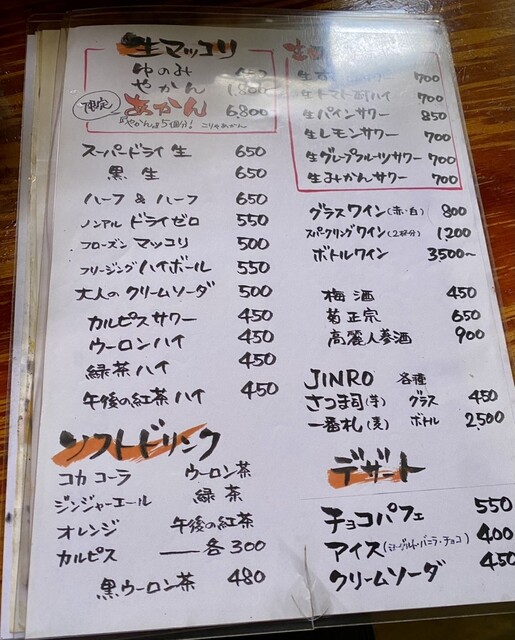 生マッコリ
ゆのみ
やかん 1,800
限定 あかん 6,800
やかん 5個分! こりゃあかん
スーパードライ 生 650
黒 生 650
ハーフ & ハーフ 650
ノンアル ドライゼロ 550
フローズン マッコリ 500
フリージング ハイボール 550
大人の クリームソーダ 500
カルピスサワー 450
ウーロンハイ 450
緑茶 ハイ 450
午後の紅茶 ハイ 450
ソフトドリンク
コカ コーラ ウーロン茶
ジンジャーエール 緑茶
オレンジ 午後の紅茶
カルピス ― 各300
黒ウーロン茶 480
700
生トマト酎ハイ 700
生パインサワー 850
生レモンサワー 700
生グレープフルーツサワー 700
生みかんサワー 700
グラスワイン(赤・白) 800
スパークリングワイン(2杯分) 1,200
ボトルワイン 3,500~
梅酒 450
菊正宗 650
高麗人参酒 900
JINRO 各種
さつま司(芋) グラス 450
一番札(麦) ボトル 2,500
デザート
チョコパフェ 550
アイス(ヨーグルト・バニラ・チョコ) 400
クリームソーダ 450